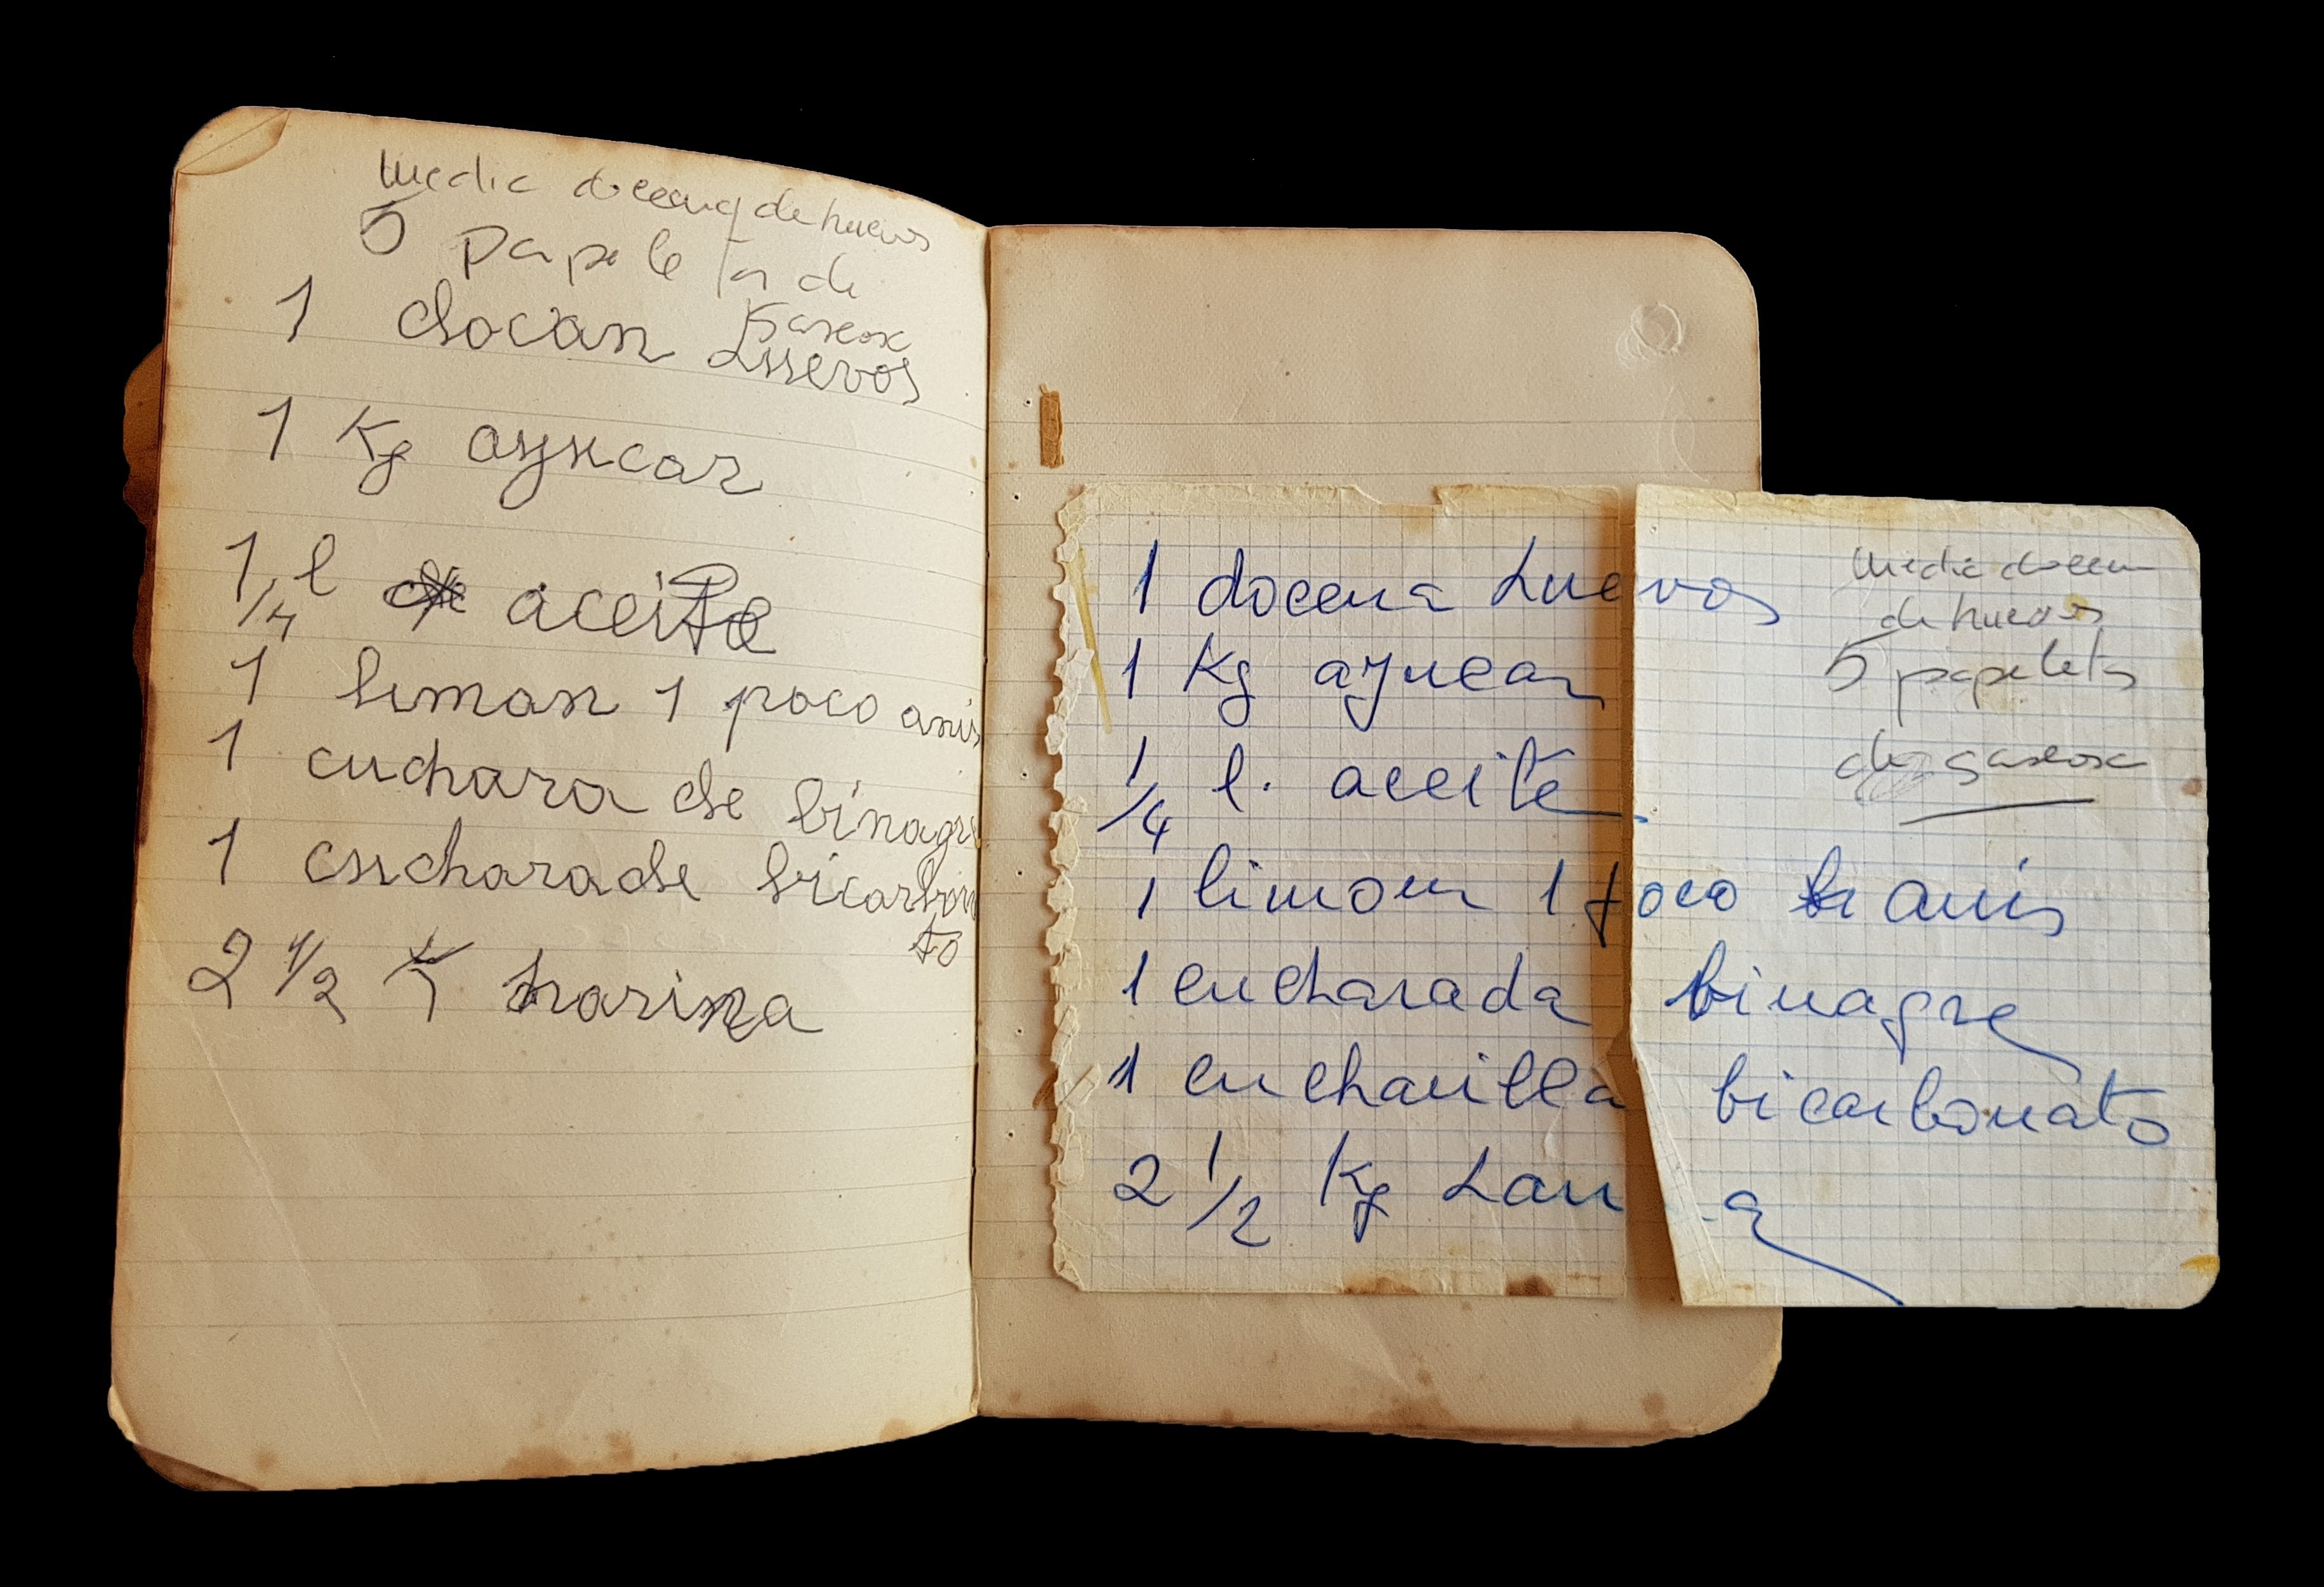 Media docena de huevos
5 papeletas de
gaseosa
1 docan huevos
1 Kg azucar
1/4 l aceite
1 limon 1 poco anis
1 cuchara de binagre
1 cucharade bicarbona
to
2 1/2 harina
1 docena huevos
1 Kg azucar
1/4 l. aceite
1 limon 1 poco anis
1 cucharada binagre
1 cucharilla bicarbonato
2 1/2 Kg
Media docena
de huevos
5 papeletas
de gaseosa